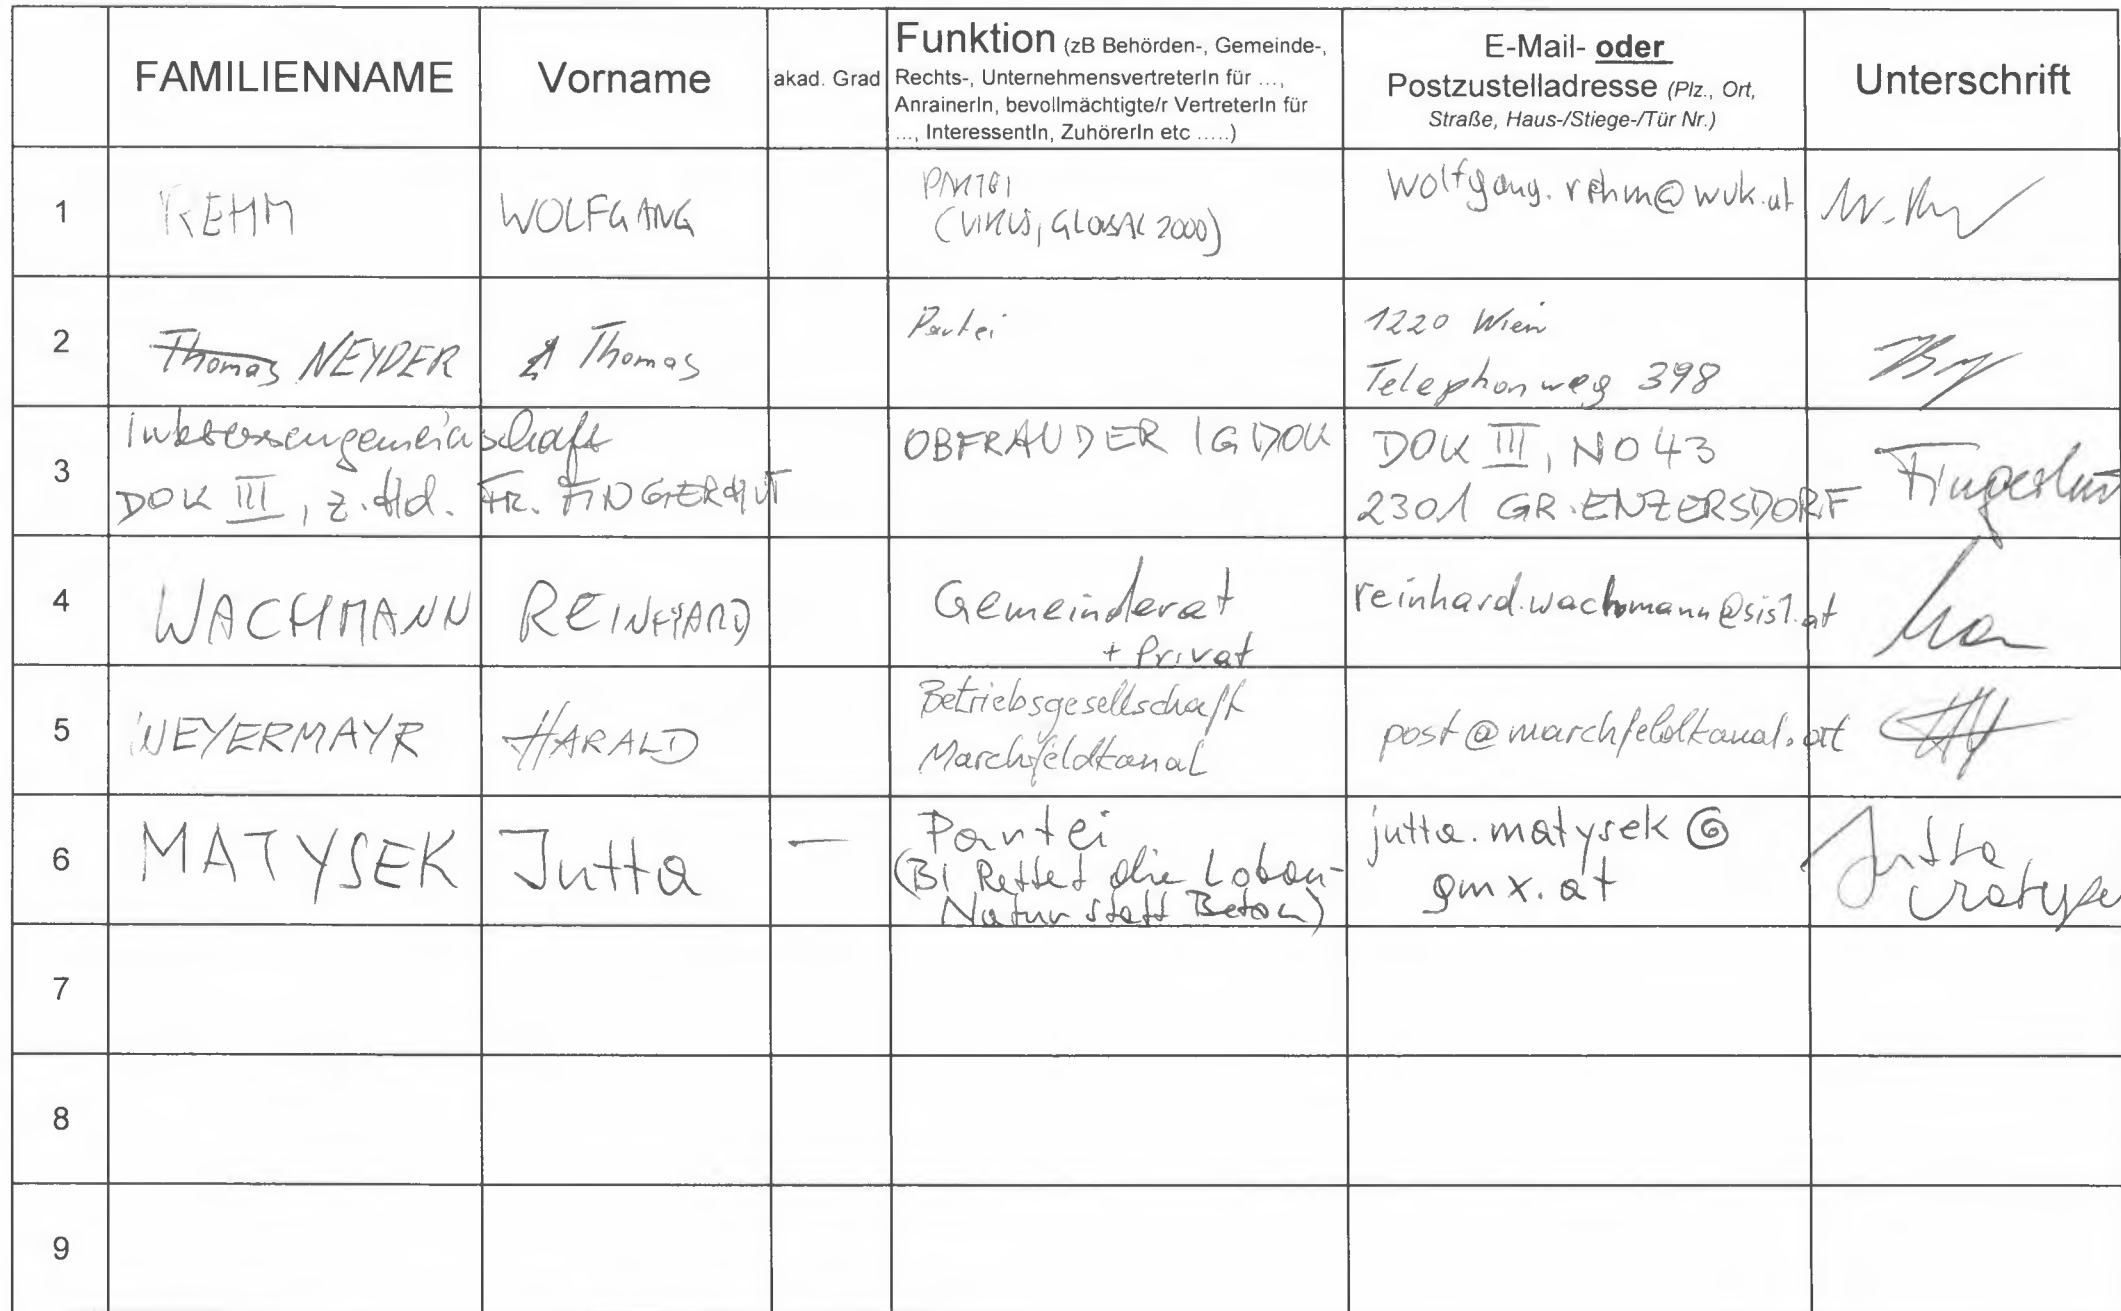 FAMILIENNAME
Vorname
akad. Grad
Funktion (zB Behörden-, Gemeinde-,
Rechts-, UnternehmensvertreterIn für ...,
AnrainerIn, bevollmächtigte/r VertreterIn für
..., InteressentIn, ZuhörerIn etc .....)
E-Mail- oder
Postzustelladresse (Plz., Ort,
Straße, Haus-/Stiege-/Tür Nr.)
Unterschrift
1
REHM
WOLFGANG
(VIRUS, GLOBAL 2000)
wolfgang.rehm@wuk.at
2
Thomas NEYDER
Thomas
Partei
1220 Wien
Telephonweg 398
3
Interessengemeinschaft
DOK III, z. Hd. FR. FINGERHUT
OBFRAU DER IG DOK
DOK III, NO 43
2301 GR. ENZERSDORF
Fingerhut
4
WACHMANN
REINHARD
Gemeinderat
+ Privat
reinhard.wachmann@sis1.at
5
NEYERMAYR
HARALD
Betriebsgesellschaft
Marchfeldkanal
post@marchfeldkanal.at
6
MATYSEK
Jutta
—
Partei
(BI Rettet die Lobau-
Natur statt Beton)
jutta.matysek@
gmx.at
Jutta
Matysek
7
8
9